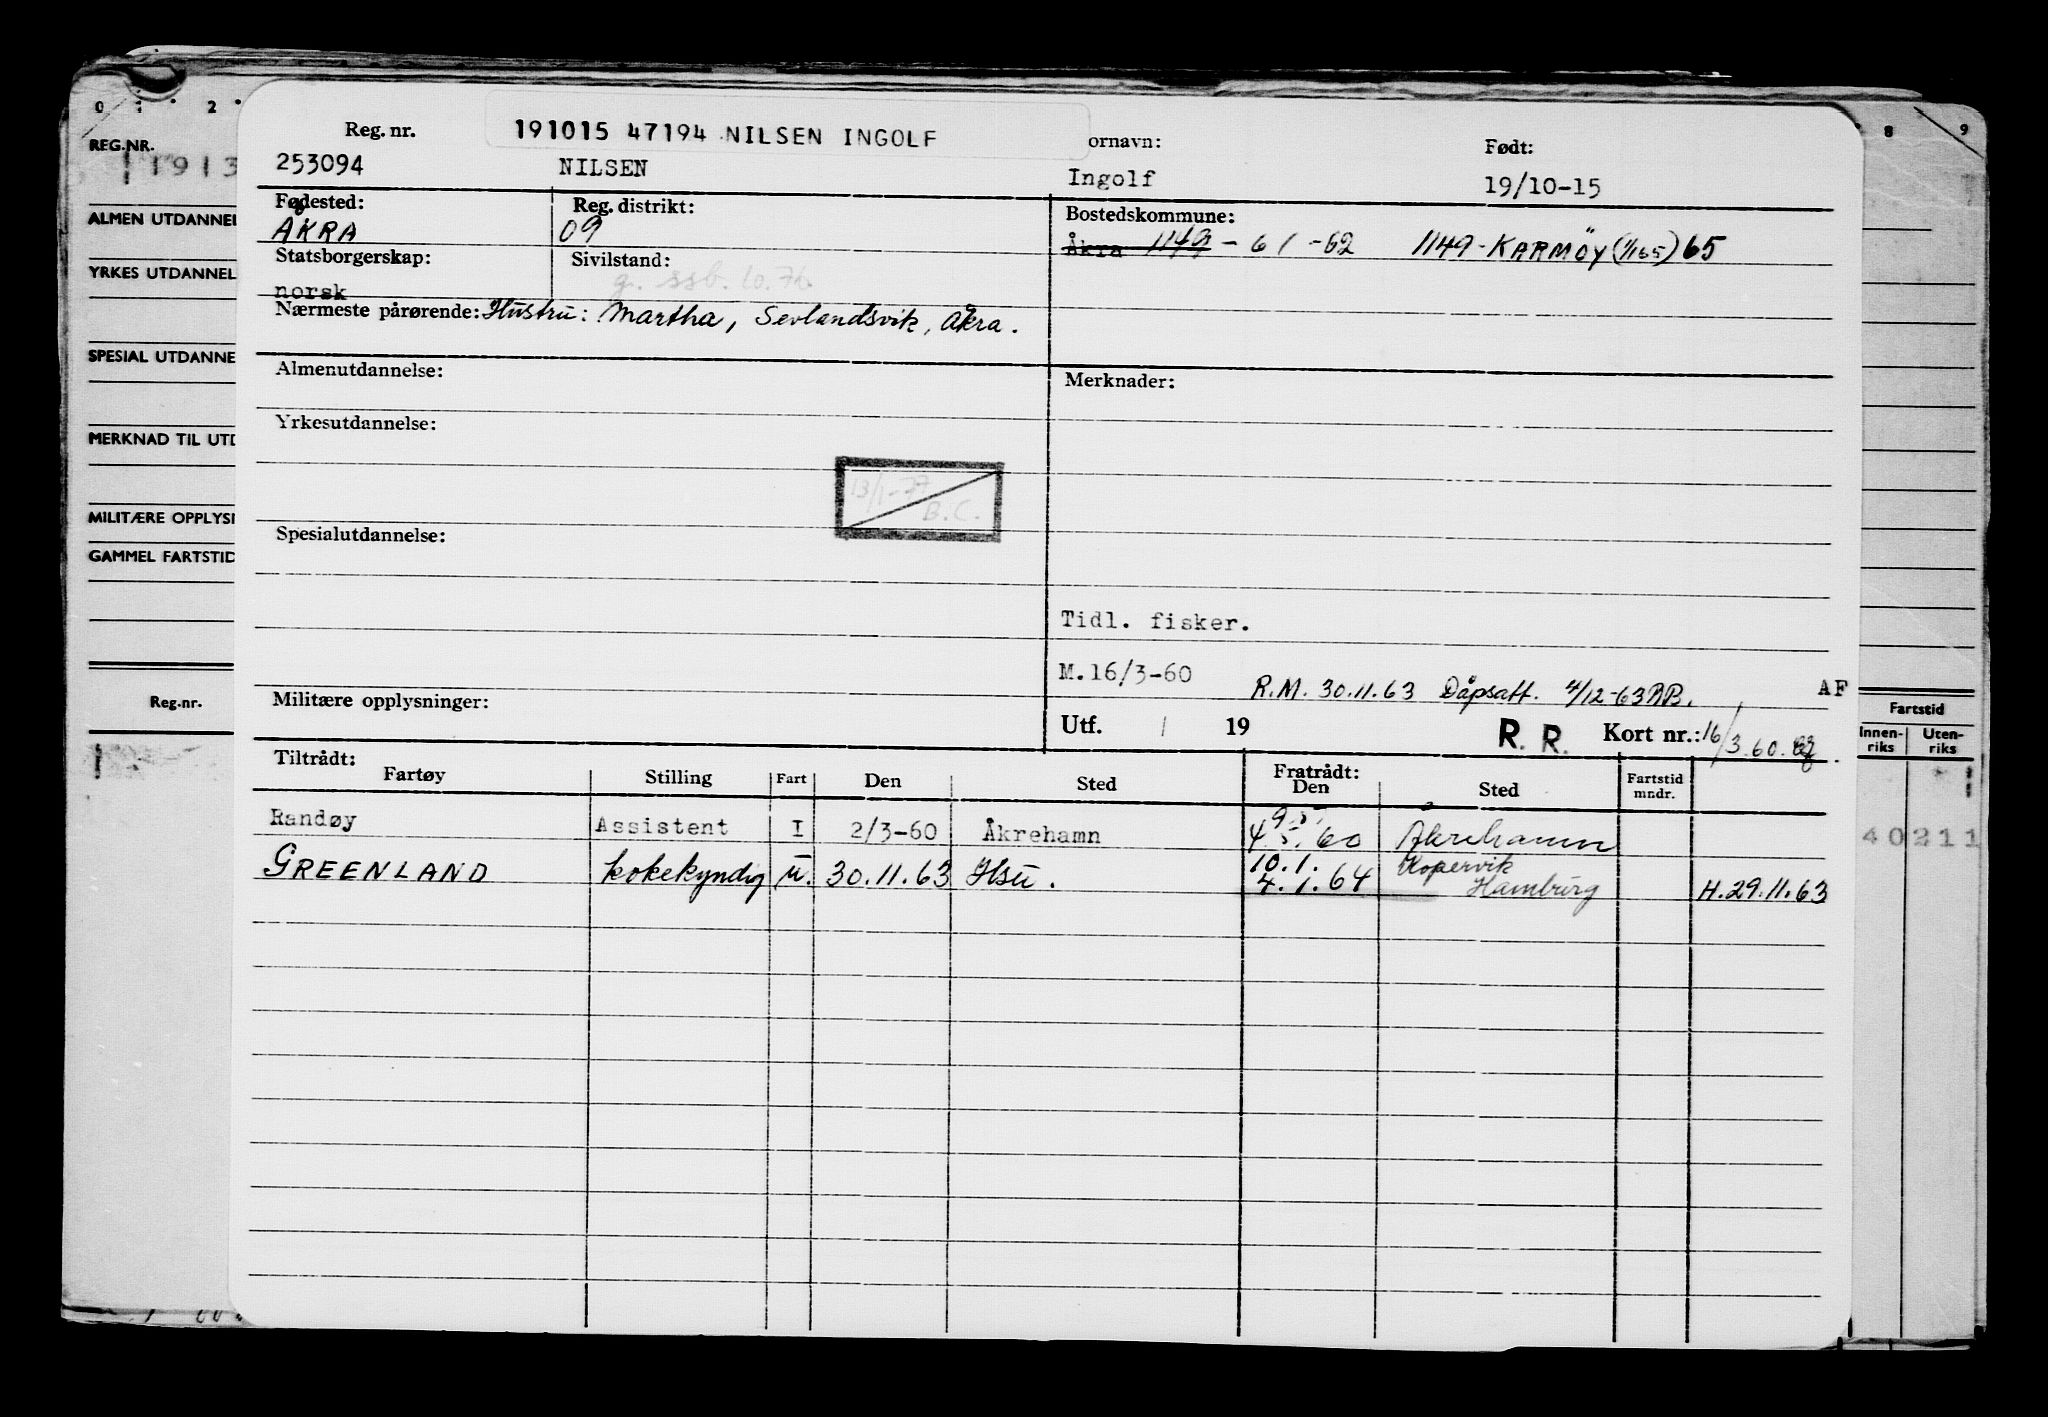 0 1 2 8 9
REG.NR.
1913
ALMEN UTDANNEL
YRKES UTDANNEL
SPESIAL UTDANNE
MERKNAD TIL UTD
MILITÆRE OPPLYSN
GAMMEL FARTSTID
Reg.nr.
191015 47194 NILSEN INGOLF
Reg. nr. ornavn: Født:
253094 NILSEN Ingolf 19/10-15
Fødested: Reg. distrikt: Bostedskommune:
ÅKRA 09 Åkra 1149 - 61 - 62 1149 - KARMÖY (1/1 65) 65
Statsborgerskap: Sivilstand:
norsk g. ssb. 10.76.
Nærmeste pårørende: Hustru: Martha, Sevlandsvik, Åkra.
Almenutdannelse: Merknader:
Yrkesutdannelse:
13/1-77
B.C.
Spesialutdannelse:
Tidl. fisker.
M.16/3-60
R.M. 30.11.63 Dåpsatt. 4/12-63 RB. AF
Militære opplysninger:
Utf. / 19 R. R. Kort nr.: 16/3.60.
Tiltrådt: Fratrådt:
Fartøy Stilling Fart Den Sted Den Sted Fartstid mndr.
Randøy Assistent I 2/3-60 Åkrehamn 4.5.60 Åkrehamn
9.5.
GREENLAND kokekyndig u. 30.11.63 Hsu. 10.1. Kopervik
4.1.64 Hamburg H.29.11.63
Fartstid
Innen-riks Uten-riks
40211